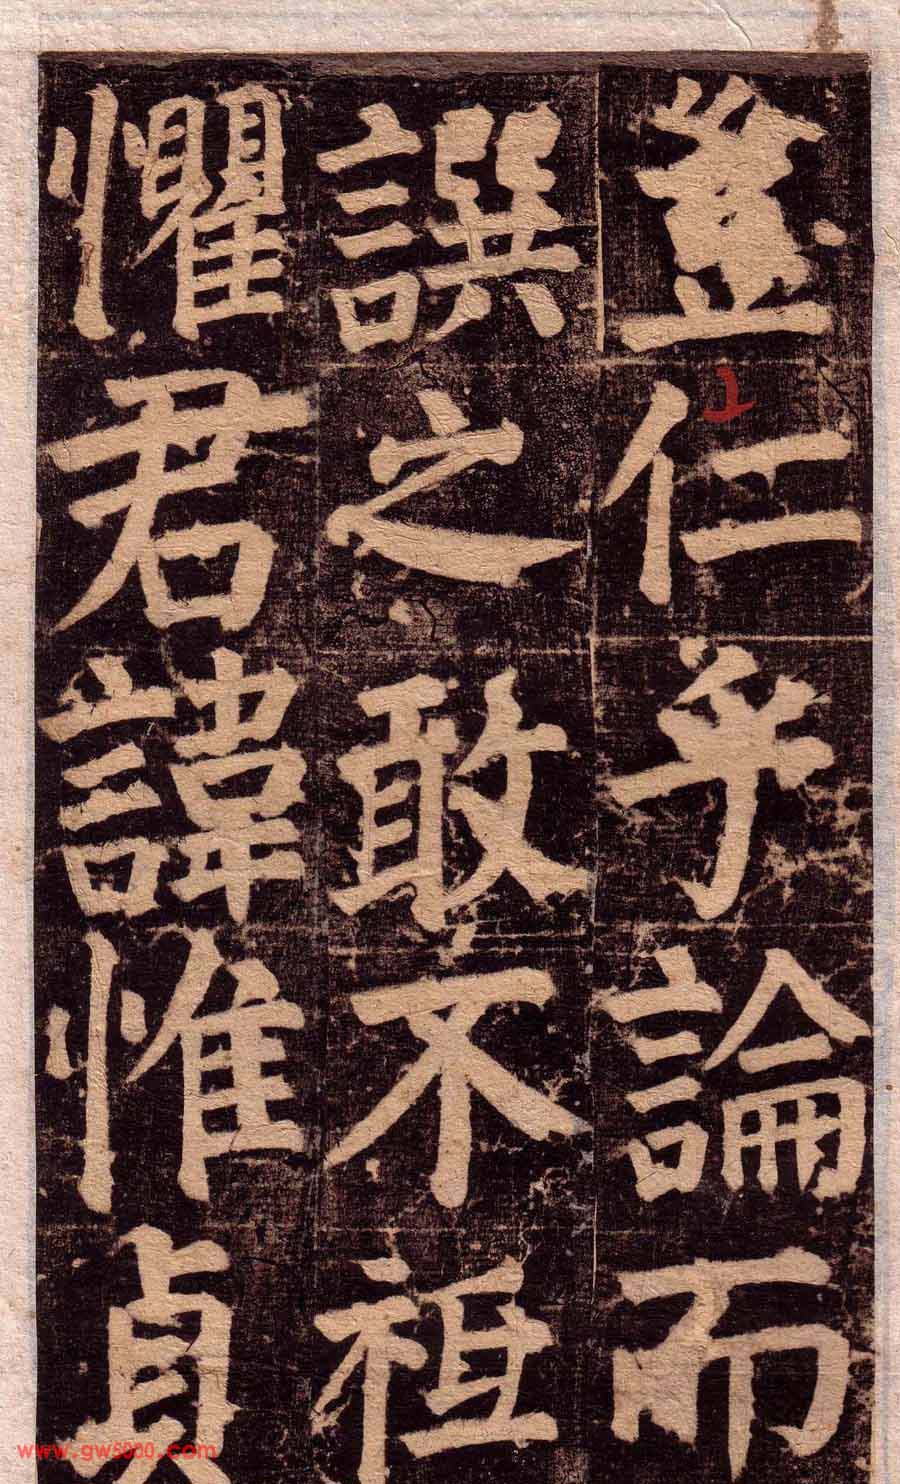 豈仁乎論而
譔之敢不祗
懼君諱惟貞
www.gw5000.com